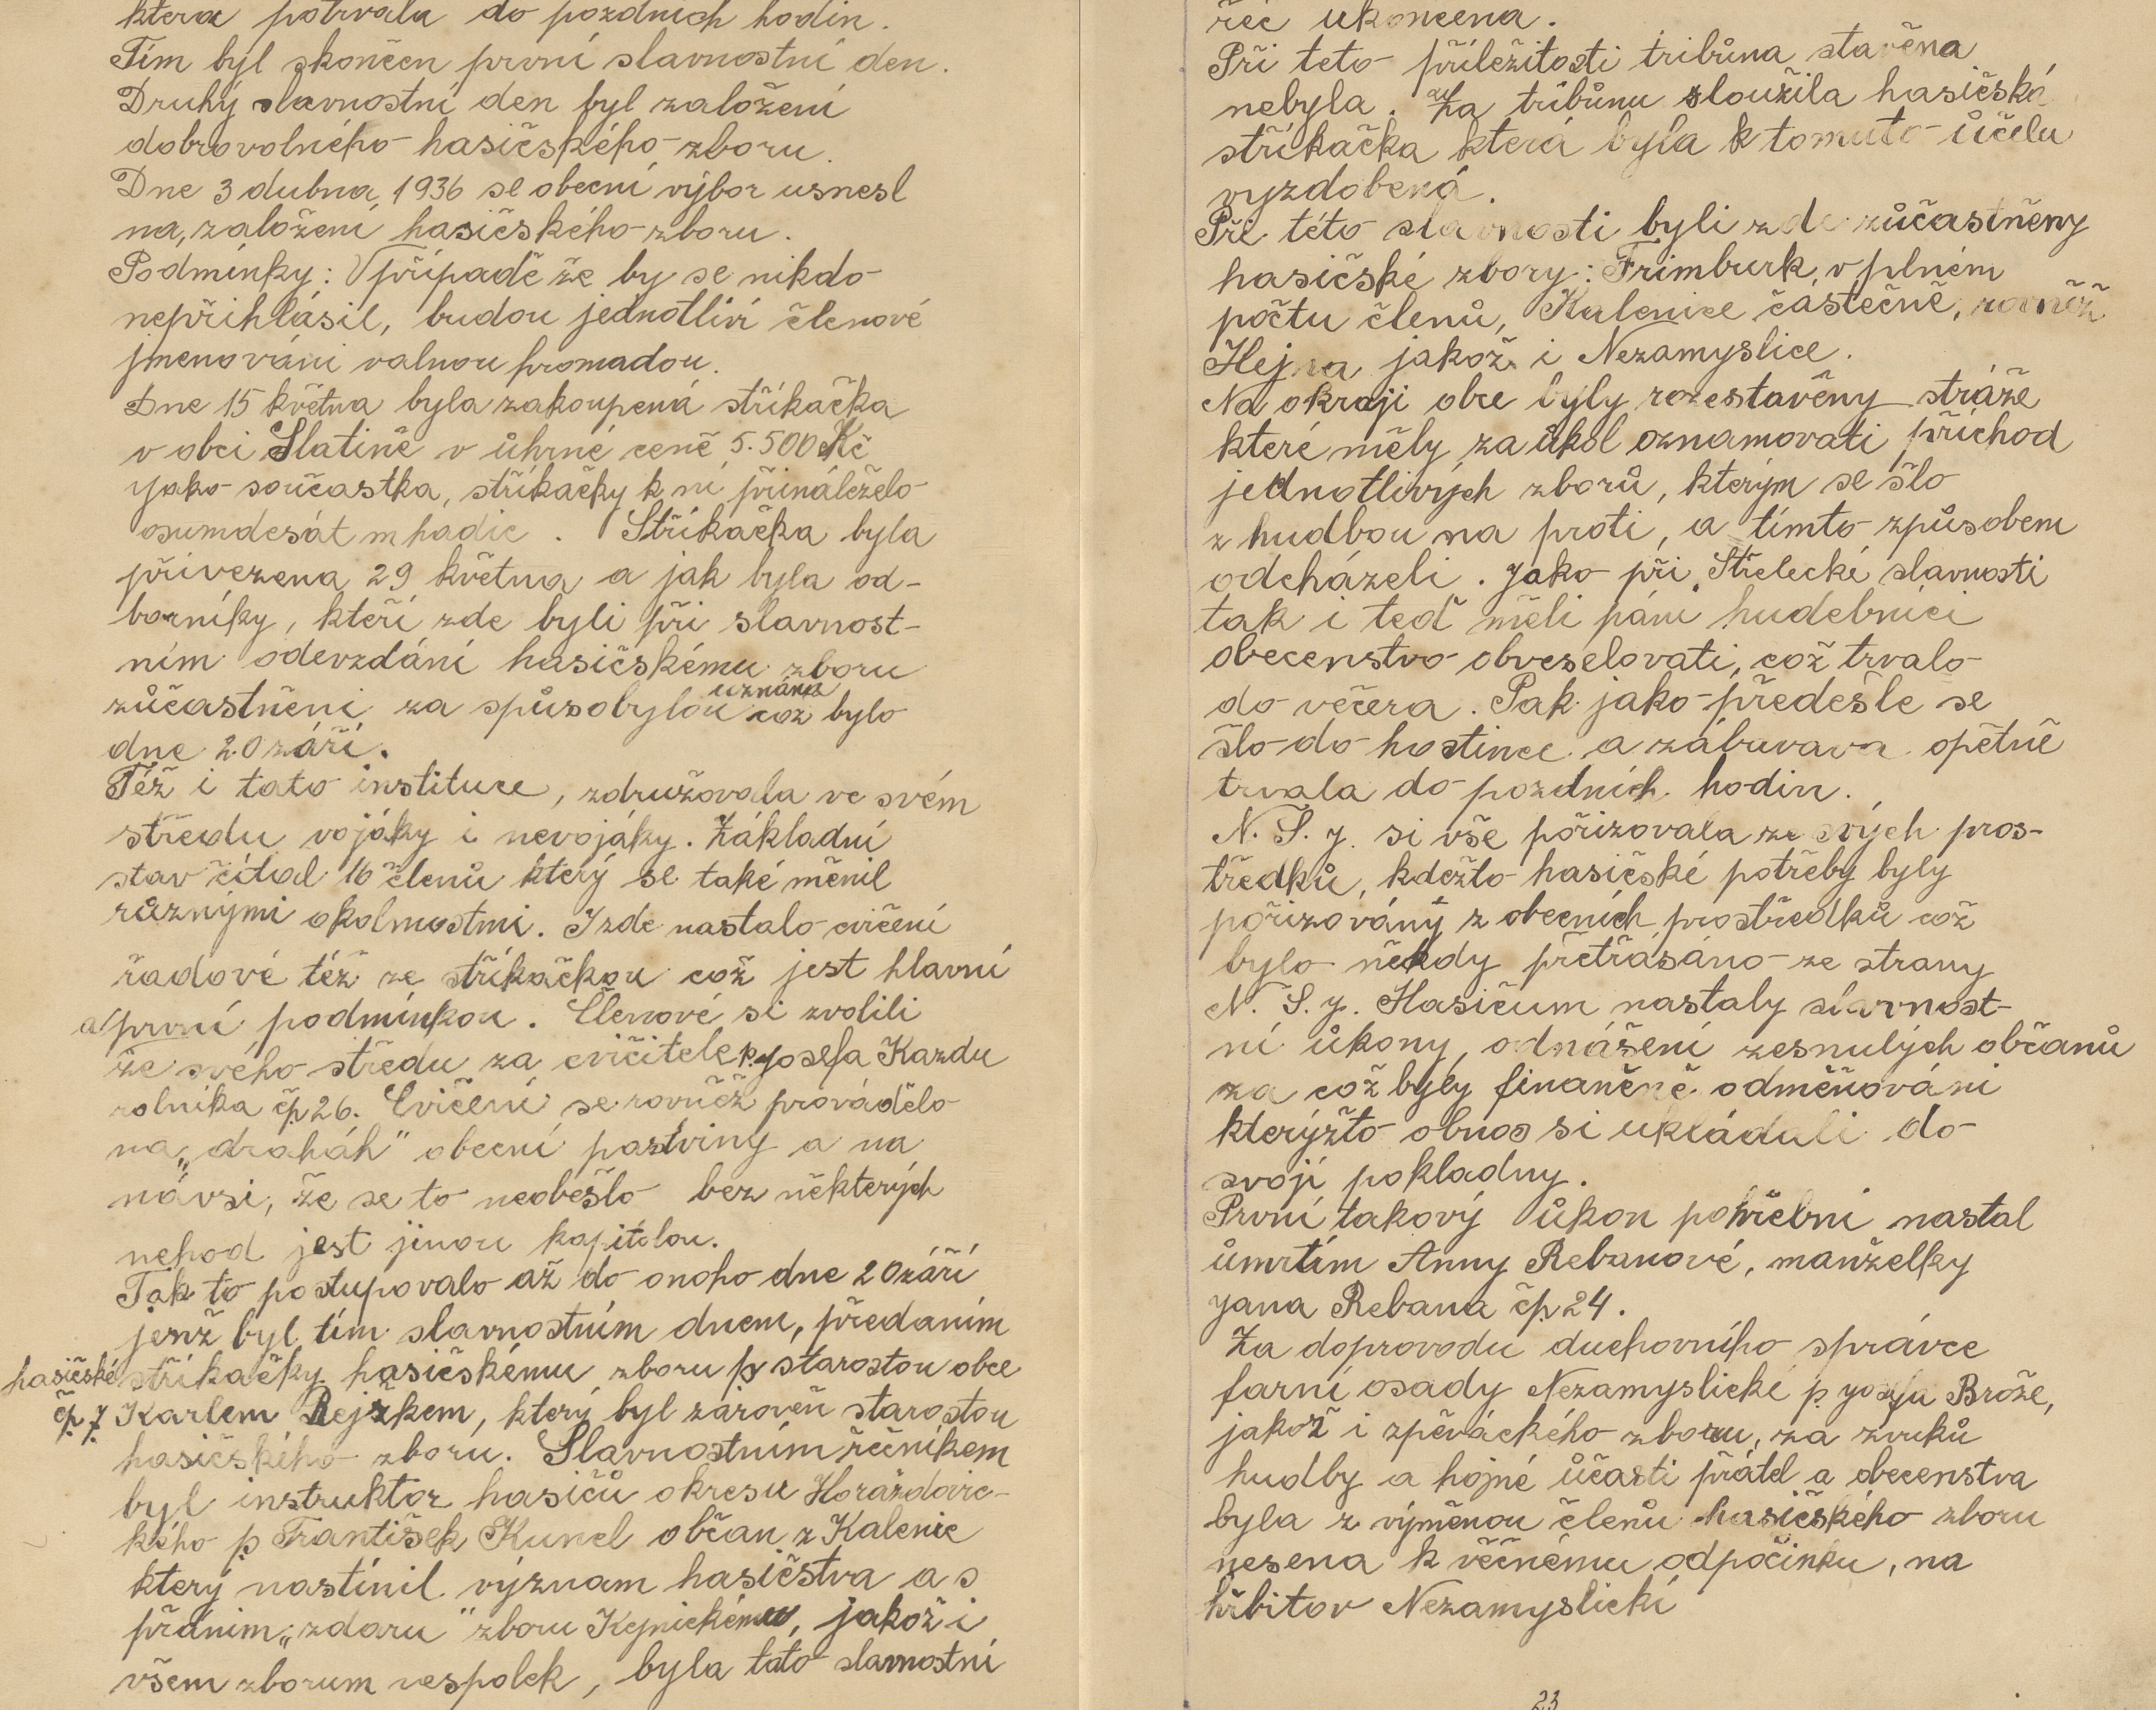 která potrvala do pozdních hodin.
Tím byl skončen první slavnostní den.
Druhý slavnostní den byl založení
dobrovolného hasičského zboru.
Dne 3 dubna 1936 se obecní výbor usnesl
na založení hasičského zboru.
Podmínky: V případě že by se nikdo
nepřihlásil, budou jednotliví členové
jmenováni valnou hromadou.
Dne 15 května byla zakoupená stříkačka
v obci Slatině v úhrné ceně 5.500 Kč
jako součastka, stříkačky k ní přináleželo
osumdesát m hadic. Stříkačka byla
přivezena 29 května a jak byla od-
borníky, kteří zde byli při slavnost-
ním odevzdání hasičskému zboru
zůčastněni za spůsobylou uznána což bylo
dne 20 září.
Též i tato instituce, združovala ve svém
středu vojáky i nevojáky. Základní
stav čítal 16 členů který se také měnil
různými okolnostmi. I zde nastalo cvičení
řadové též ze stříkačkou což jest hlavní
a první podmínkou. Členové si zvolili
ze svého středu za cvičitele p. Josefa Kazdu
rolníka čp. 26. Cvičení se rovněž provádělo
na „drahách" obecní pastviny a na
návsi, že se to neobešlo bez některých
nehod jest jinou kapitolou.
Tak to postupovalo až do onoho dne 20 září
jenž byl tím slavnostním dnem, předaním
hasičské stříkačky hasičskému zboru p. starostou obce
čp. 7 p. Karlem Rejžkem, který byl zároveň starostou
hasičského zboru. Slavnostním řečníkem
byl instruktor hasičů okresu Horažďovic-
kého p. František Kunel občan z Kalenic
který nastínil význam hasičstva a s
přáním „zdaru" zboru Kejnickému, jakož i
všem zborum vespolek, byla tato slavnostní
řeč ukončena.
Při teto příležitosti tribůna stavěna
nebyla. Za tribůnu sloužila hasičská
stříkačka která byla k tomuto účelu
vyzdobená.
Při této slavnosti byli zde zůčastněny
hasičské zbory: Frimburk v plném
počtu členů, Kalenice částečně, rovněž
Hejna jakož i Nezamyslice.
Na okraji obce byly rozestavěny stráže
které měly za úkol oznamovati příchod
jednotlivých zborů, kterým se šlo
z hudbou na proti, a tímto způsobem
odcházeli. Jako při Střelecké slavnosti
tak i teď měli páni hudebníci
obecenstvo obveselovati, což trvalo
do večera. Pak jako předešle se
šlo do hostince a zábavava opětně
trvala do pozdních hodin.
N. S. J. si vše pořizovala ze svých pros-
tředků, kdežto hasičské potřeby byly
pořizovány z obecních prostředků což
bylo někdy přetřásáno ze strany
N. S. J. Hasičum nastaly slavnost-
ní úkony, odnášení zesnulých občanů
za což byly finančně odměňováni
kterýžto obnos si ukládali do
svojí pokladny.
První takový úkon pohřební nastal
úmrtím Anny Rebanové, manželky
Jana Rebana čp. 24.
Za doprovodu duchovního správce
farní osady Nezamyslické p. Josefa Brože,
jakož i zpěváckého zboru, za zvuků
hudby a hojné účasti přátel a obecenstva
byla z výměnou členů hasičského zboru
nesena k věčnému odpočinku, na
hřbitov Nezamyslický
23